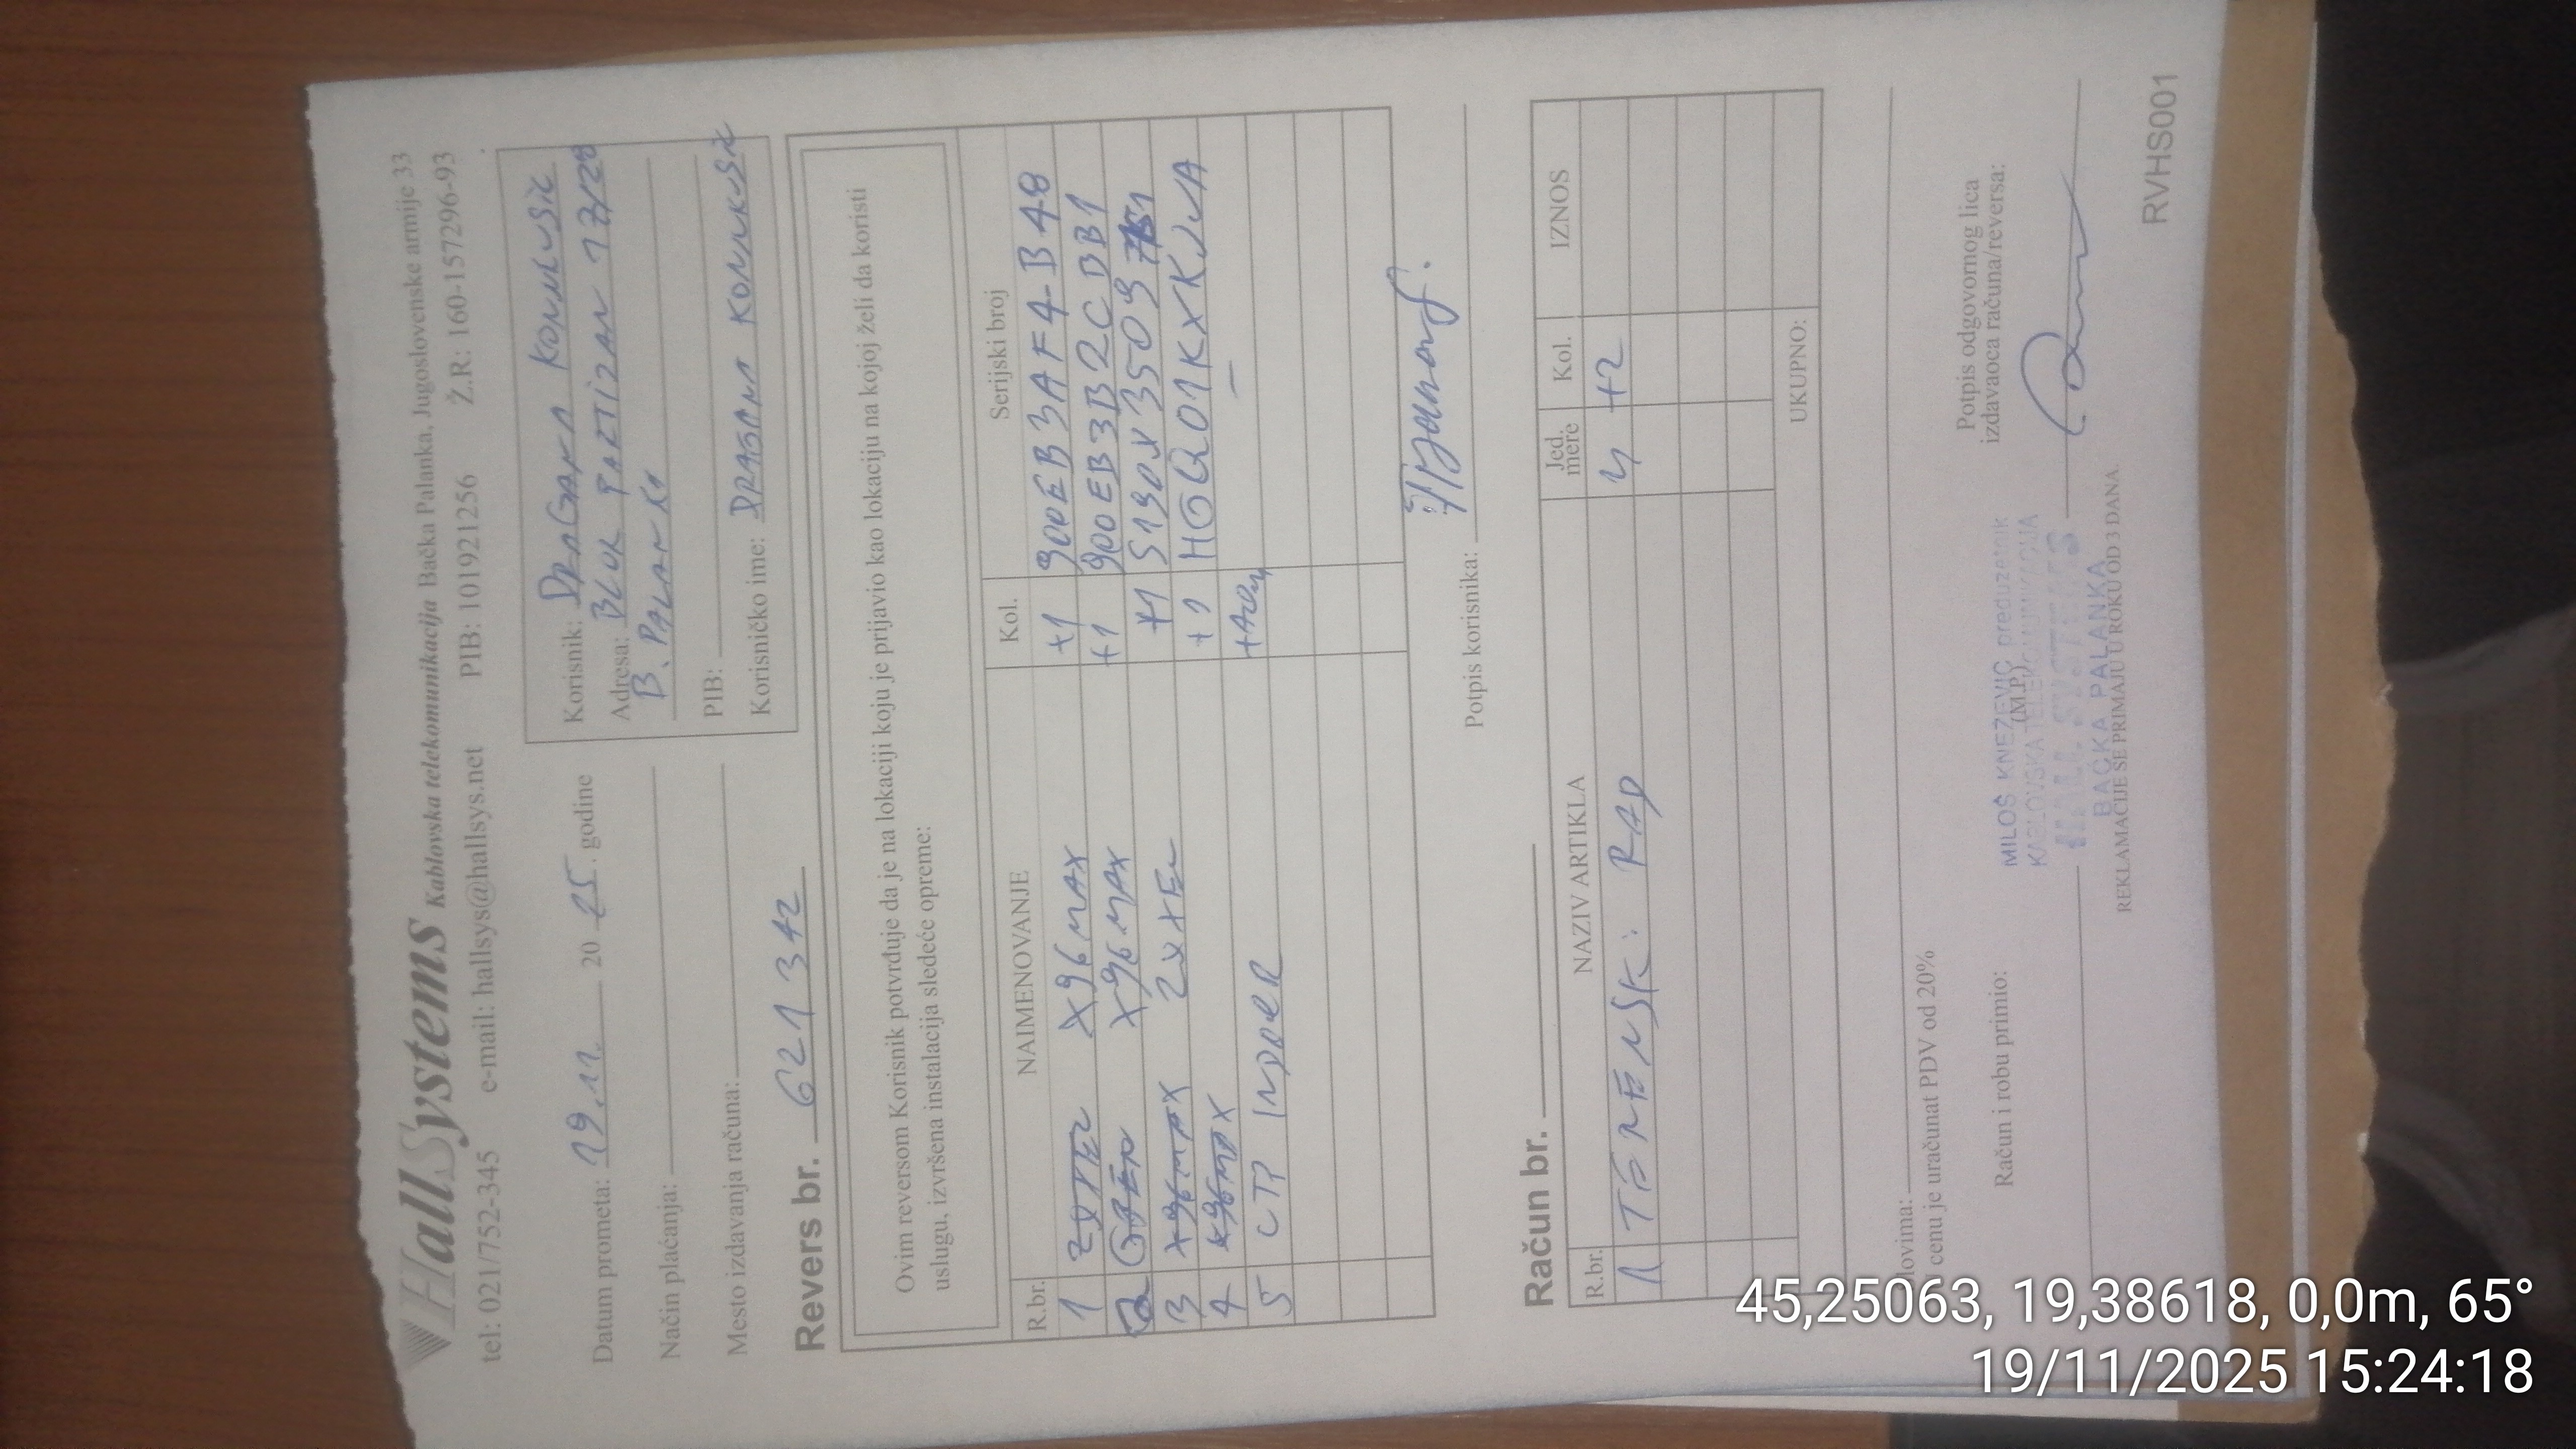 HallSystems Kablovska telekomunikacija Bačka Palanka, Jugoslovenske armije 33
tel: 021/752-345 e-mail: hallsys@hallsys.net PIB: 101921256 Ž.R: 160-157296-93
Datum prometa: 19.11. 20 25. godine
Način plaćanja:
Mesto izdavanja računa:
Korisnik: DRAGANA KONJUŠIĆ
Adresa: BLOK PARTIZAN 17/28
B. PALANKA
PIB:
Korisničko ime: DRAGANA KONJUŠIĆ
Revers br. 621342
Ovim reversom Korisnik potvrđuje da je na lokaciji koju je prijavio kao lokaciju na kojoj želi da koristi
uslugu, izvršena instalacija sledeće opreme:
R.br. NAIMENOVANJE Kol. Serijski broj
1 X96MAX +1 900EB3AF4B48
2 X96MAX +1 900EB3B2CBB1
3 X96MAX ZYXEL +1 S190X3509
4 X96MAX +1
5 CTP INDOOR
Potpis korisnika:
Račun br.
R.br. NAZIV ARTIKLA Jed. mere Kol. IZNOS
1 TERENSKI RAD Y +2
UKUPNO:
lovima:
cenu je uračunat PDV od 20%
Račun i robu primio:
Potpis odgovornog lica
izdavaoca računa/reversa:
MILOŠ KNEŽEVIĆ preduzetnik
(M.P.)
KABLOVSKA TELEKOMUNIKACIJA
HALL SYSTEMS
BAČKA PALANKA
REKLAMACIJE SE PRIMAJU U ROKU OD 3 DANA.
RVHS001
45,25063, 19,38618, 0,0m, 65°
19/11/2025 15:24:18